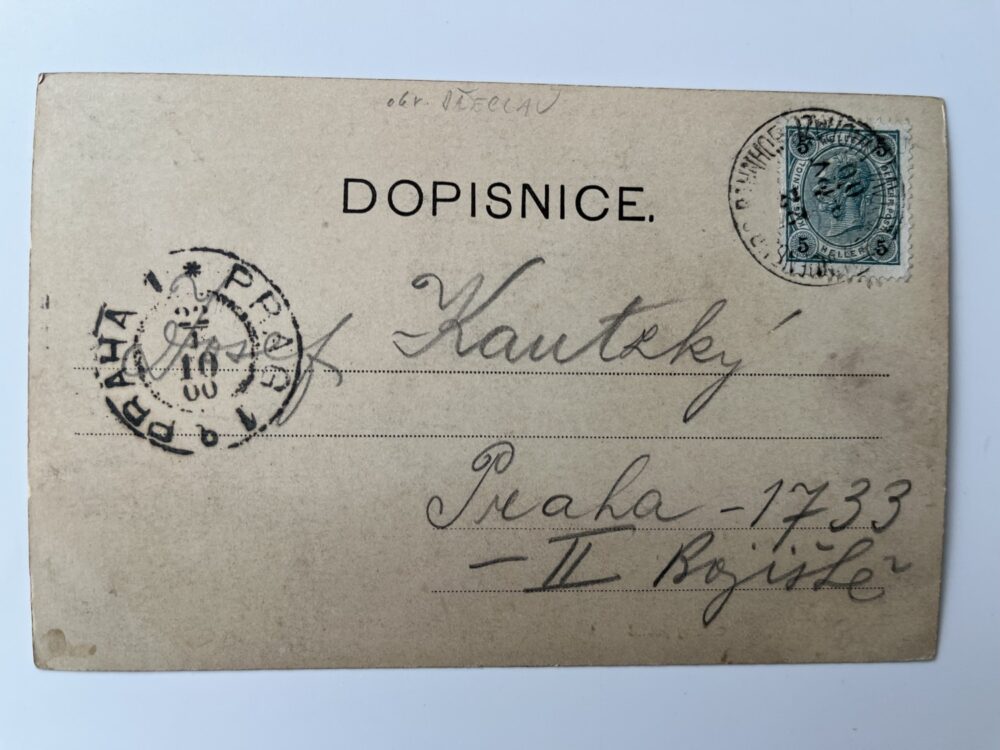 obr. BŘECLAV
DOPISNICE.
5 5
5 HELLER 5
PRAG 1
PRAHA 1
22
10
00
Josef Kautzký
Praha - 1733
- II Bojiště